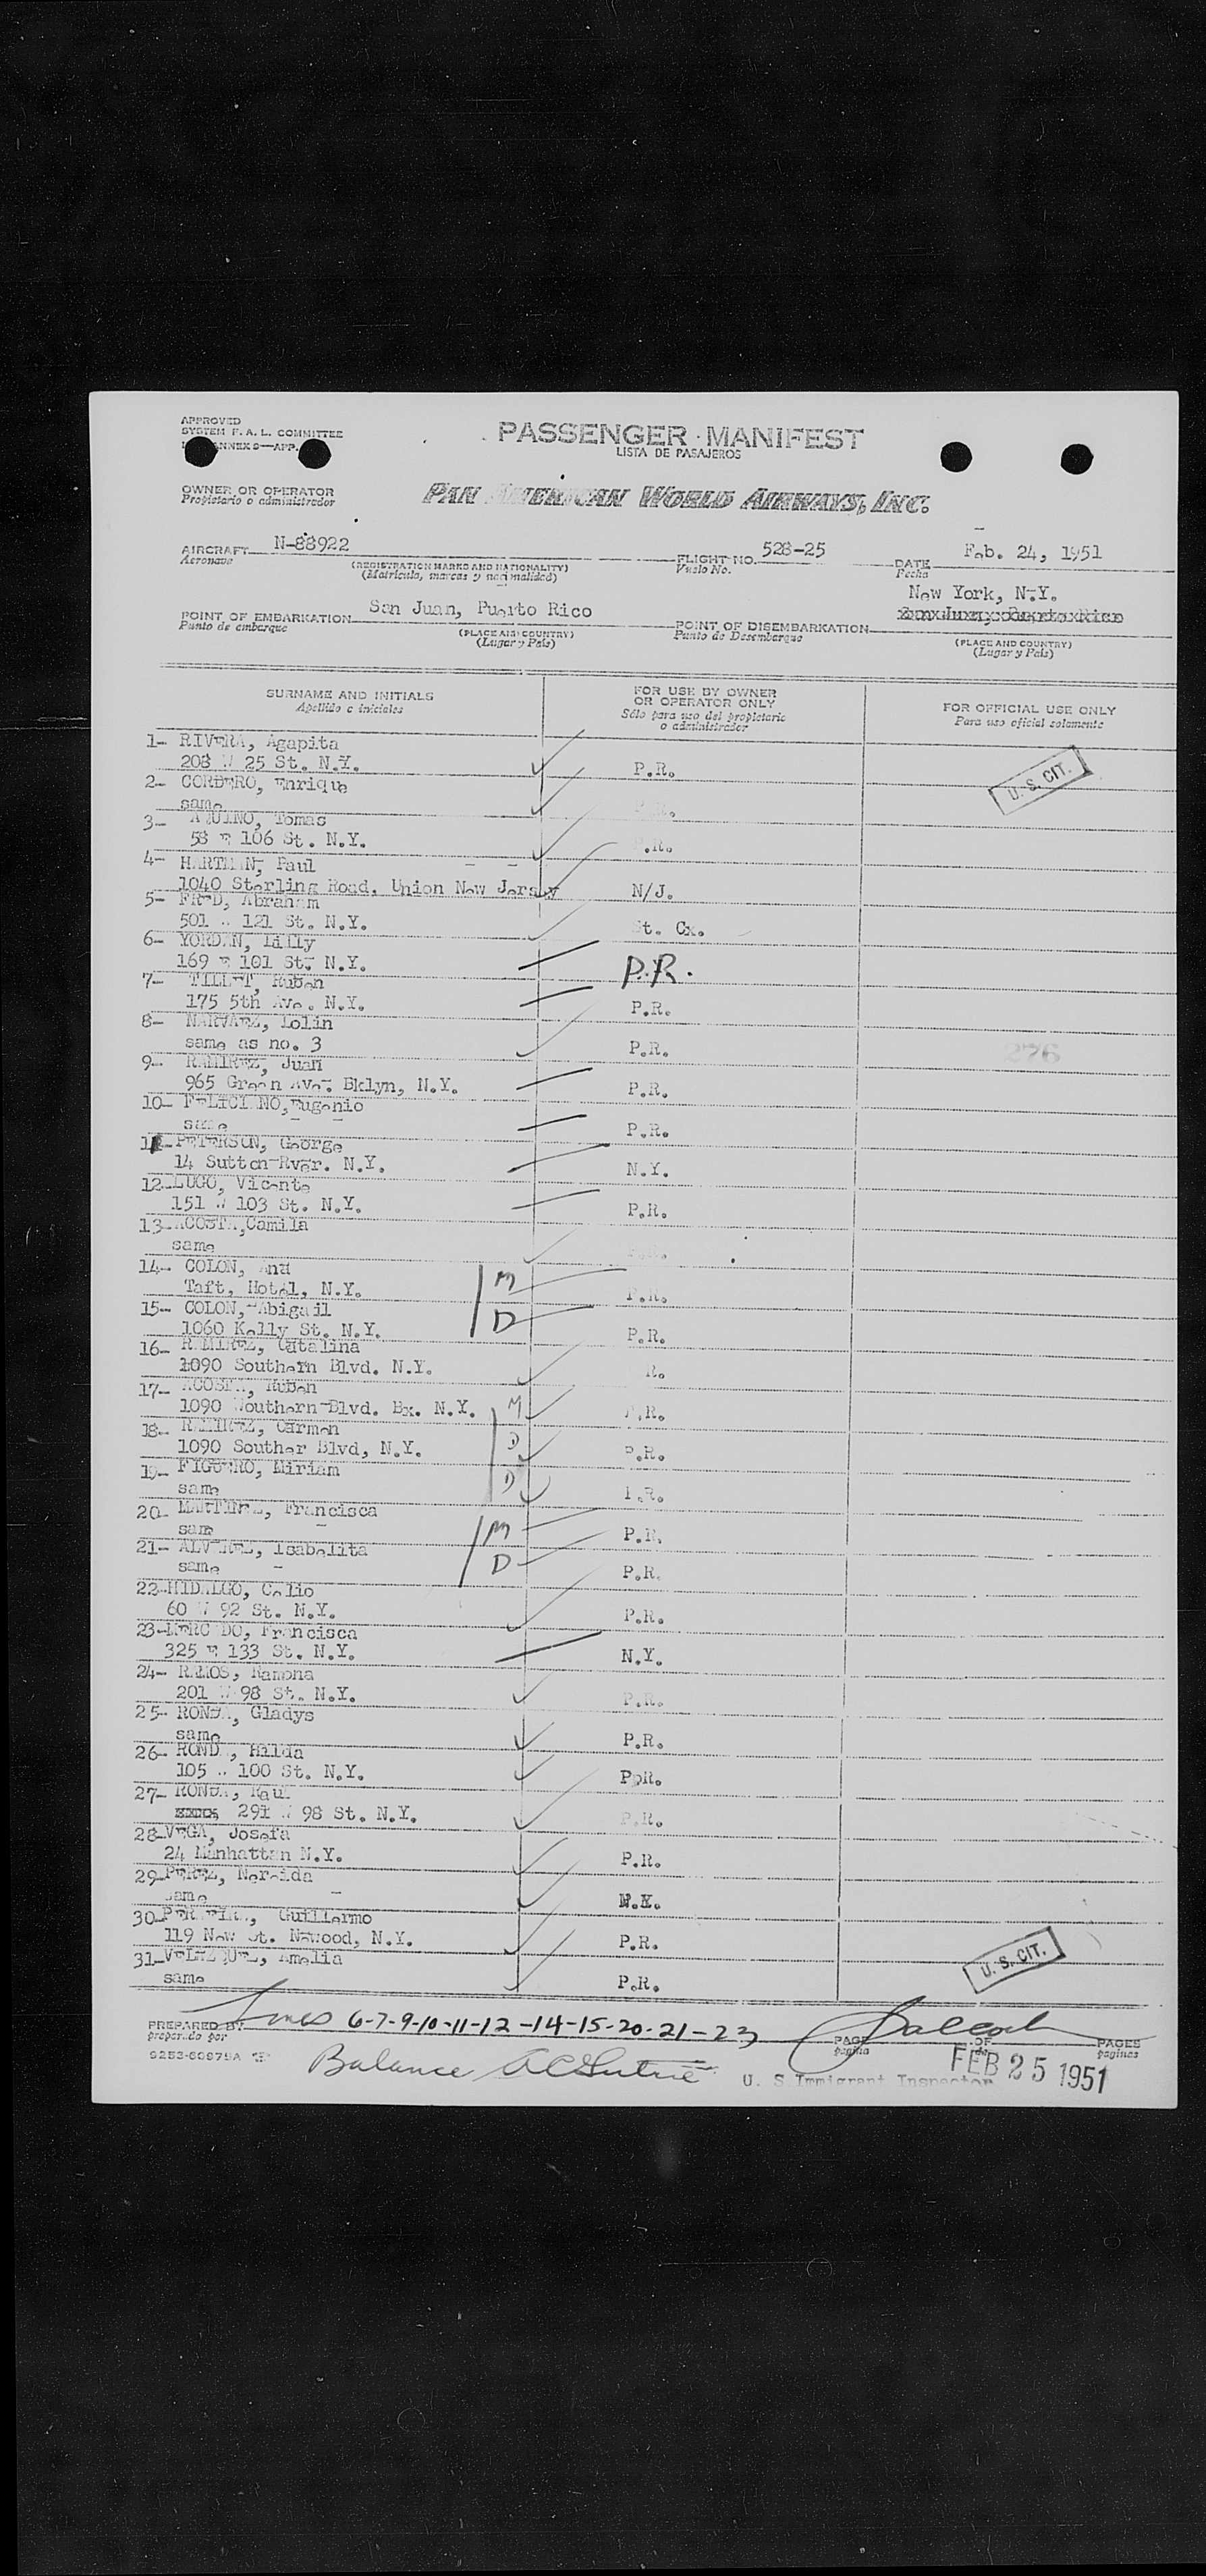 APPROVED
SYSTEM F. A. L. COMMITTEE
ANNEX 9—APP.
PASSENGER MANIFEST
LISTA DE PASAJEROS
OWNER OR OPERATOR
Propietario o administrador
PAN AMERICAN WORLD AIRWAYS, INC.
AIRCRAFT N-88922
Aeronave
(REGISTRATION MARKS AND NATIONALITY)
(Matricula, marcas y nacionalidad)
FLIGHT NO. 528-25
Vuelo No.
DATE Feb. 24, 1951
Fecha
New York, N.Y.
POINT OF EMBARKATION San Juan, Puerto Rico
Punto de embarque
(PLACE AND COUNTRY)
(Lugar y Pais)
POINT OF DISEMBARKATION San Juan, Puerto Rico
Punto de Desembarque
(PLACE AND COUNTRY)
(Lugar y Pais)
SURNAME AND INITIALS
Apellido e iniciales
FOR USE BY OWNER
OR OPERATOR ONLY
Sólo para uso del propietario
o administrador
FOR OFFICIAL USE ONLY
Para uso oficial solamente
1- RIVERA, Agapita
208 W 25 St. N.Y. P.R.
U. S. CIT.
2- CORDERO, Enrique
same P.R.
3- AQUINO, Tomas
58 E 106 St. N.Y. P.R.
4- HARTMAN, Paul
1040 Sterling Road, Union New Jersey N/J.
5- FRED, Abraham
501 W 121 St. N.Y. St. Cx.
6- YORDAN, Lilly
169 E 101 St. N.Y. P.R.
7- TILLET, Ruben
175 5th Ave. N.Y. P.R.
8- NARVAEZ, Lolin
same as no. 3 P.R.
276
9- RAMIREZ, Juan
965 Green Ave. Bklyn, N.Y. P.R.
10- FELICIANO, Eugenio
same P.R.
11- PETERSON, George
14 Sutton-Rver. N.Y. N.Y.
12- LUGO, Vicente
151 W 103 St. N.Y. P.R.
13- ACOSTA, Camila
same
14- COLON, Ana M
Taft, Hotel, N.Y. P.R.
15- COLON, Abigail D
1060 Kelly St. N.Y. P.R.
16- RAMIREZ, Catalina
1090 Southern Blvd. N.Y. R.
17- ACOSTA, Ruben
1090 Southern Blvd. Bx. N.Y. M P.R.
18- RAMIREZ, Carmen
1090 Souther Blvd, N.Y. D P.R.
19- FIGUERO, Miriam
same D P.R.
20- MARTINEZ, Francisca
sam M P.R.
21- ALVEREZ, Isabelita
same D P.R.
22- HIDALGO, Celio
60 W 92 St. N.Y. P.R.
23- MERCADO, Francisca
325 E 133 St. N.Y. N.Y.
24- RAMOS, Ramona
201 W 98 St. N.Y. P.R.
25- RONDA, Gladys
same P.R.
26- RONDA, Hilda
105 W 100 St. N.Y. PpR.
27- RONDA, Raul
291 W 98 St. N.Y. P.R.
28- VEGA, Josefa
24 Manhattan N.Y. P.R.
29- PEREZ, Nereida
same
30- PEREIRA, Guillermo
119 New St. Newood, N.Y. P.R.
31- VELAZQUEZ, Amelia
same P.R.
U. S. CIT.
PREPARED BY
preparado por
6-7-9-10-11-12-14-15-20-21-23
PAGE OF PAGES
página de páginas
9253-60975A
Balance
U. S Immigrant Inspector
FEB 25 1951